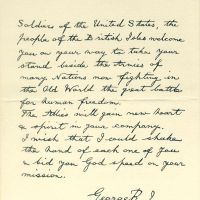 Soldiers of the United States, the
people of the British Isles welcome
you on your way to take your
stand beside the Armies of
many Nations now fighting in
the Old World the great battle
for human freedom.
The Allies will gain new heart
& spirit in your company.
I wish that I could shake
the hand of each one of you
& bid you God speed on your
mission.
George R.I.